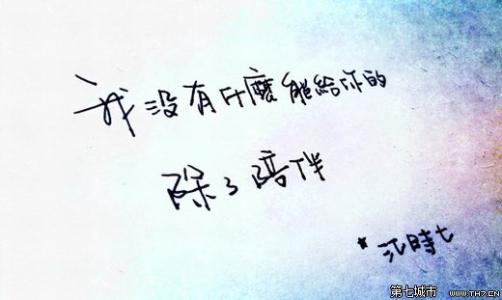 我没有什麼能給你的
除了陪伴
*江時七
第七城市 WWW.TH7.CN